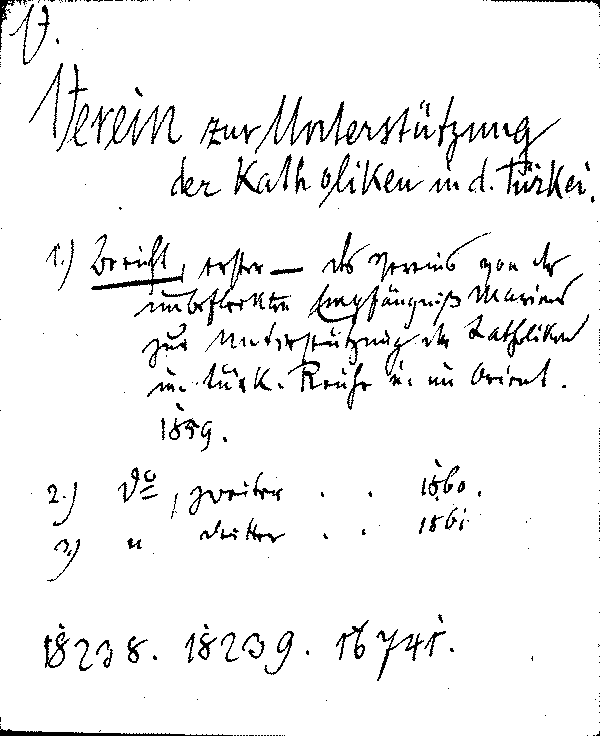 V.
Verein zur Unterstützung
der Katholiken in d. Türkei.
1.) Bericht, erster — des Vereins von der
unbefleckten Empfängniß Mariens
zur Unterstützung der Katholiken
im türk. Reiche u. im Orient.
1859.
2.) do, zweiter . . 1860.
3.) " dritter . . 1861
18238. 18239. 16741.